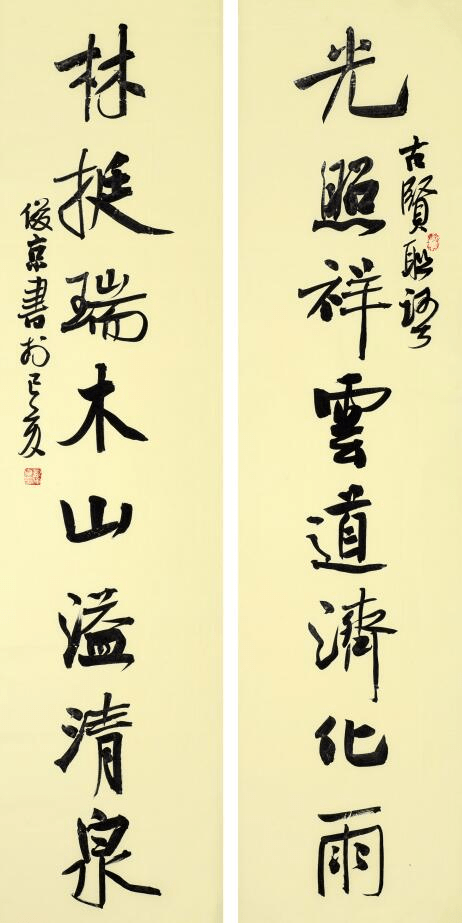 光照祥雲道濟化雨
古賢聯語
林挺瑞木山溢清泉
俊京書於己亥